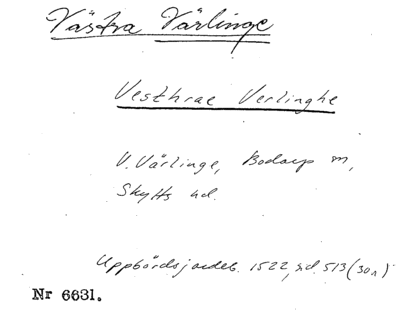 Västra Värlinge
Vesthrae Verlinghe
V. Värlinge, Bodarp sn,
Skytts hd.
Uppbördsjordeb. 1522, sid. 513 (30₁)
Nr 6631.